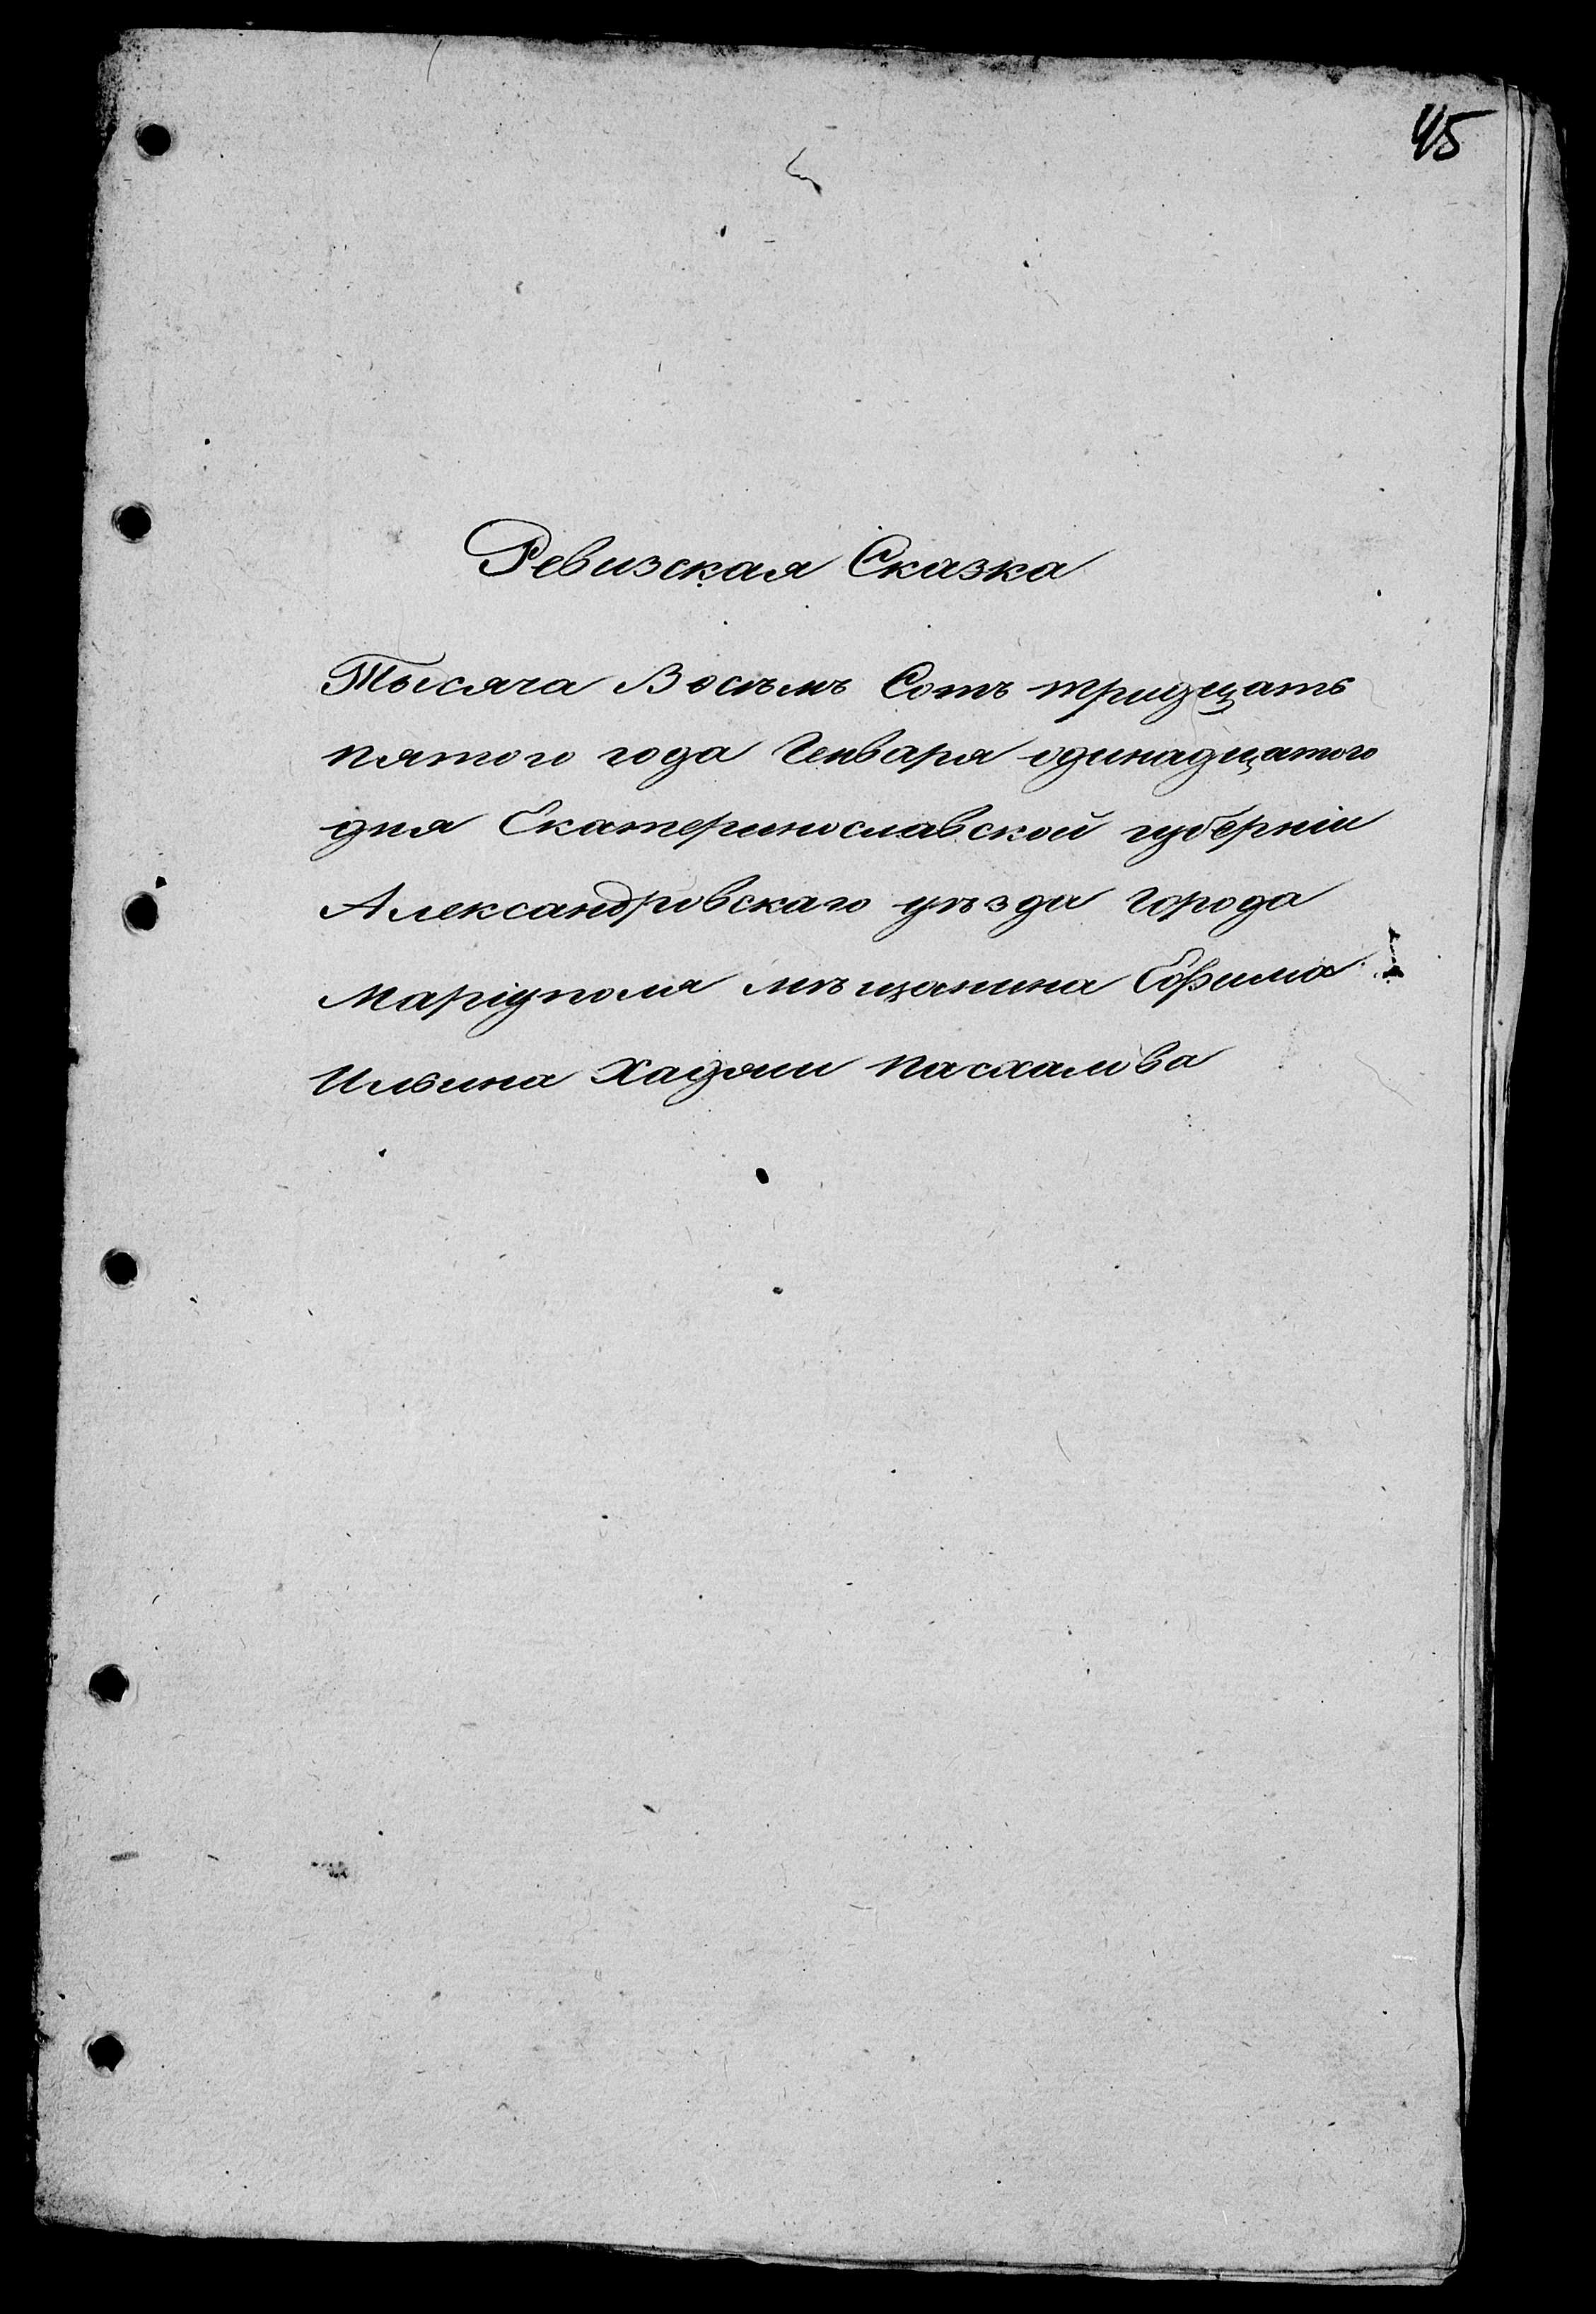 45
Ревизская Сказка
Тысяча Восемь Сотъ тридцать
пятого года Генваря одинадцатого
дня Екатеринославской губерніи
Александровскаго уѣзда города
Маріуполя мѣщанина Ефима
Ильина Хаджи Пасхалова